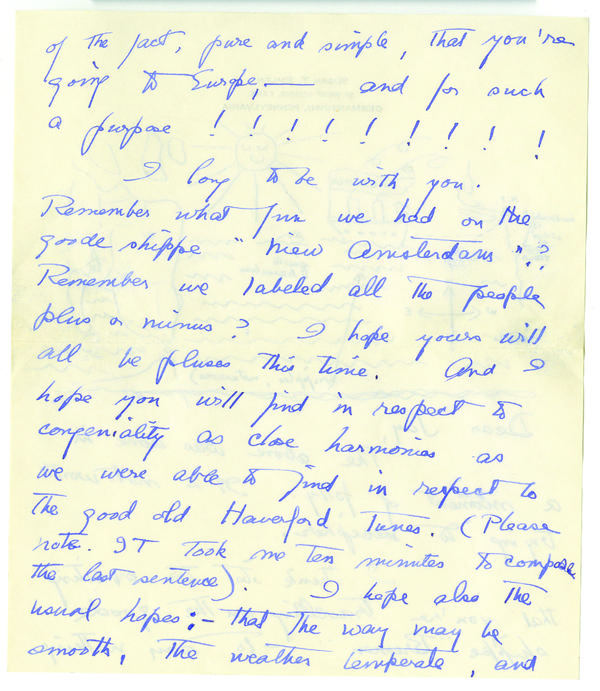 of the fact, pure and simple, that you're
going to Europe, — and for such
a purpose ! ! ! ! ! ! ! ! ! !
I long to be with you.
Remember what fun we had on the
goode shippe "Niew Amsterdam"??
Remember we labeled all the people
plus or minus? I hope yours will
all be pluses this time. And I
hope you will find in respect to
congeniality as close harmonies as
we were able to find in respect to
the good old Haverford Tunes. (Please
note. It took me ten minutes to compose
the last sentence). I hope also the
usual hopes:— that the way may be
smooth, the weather temperate, and